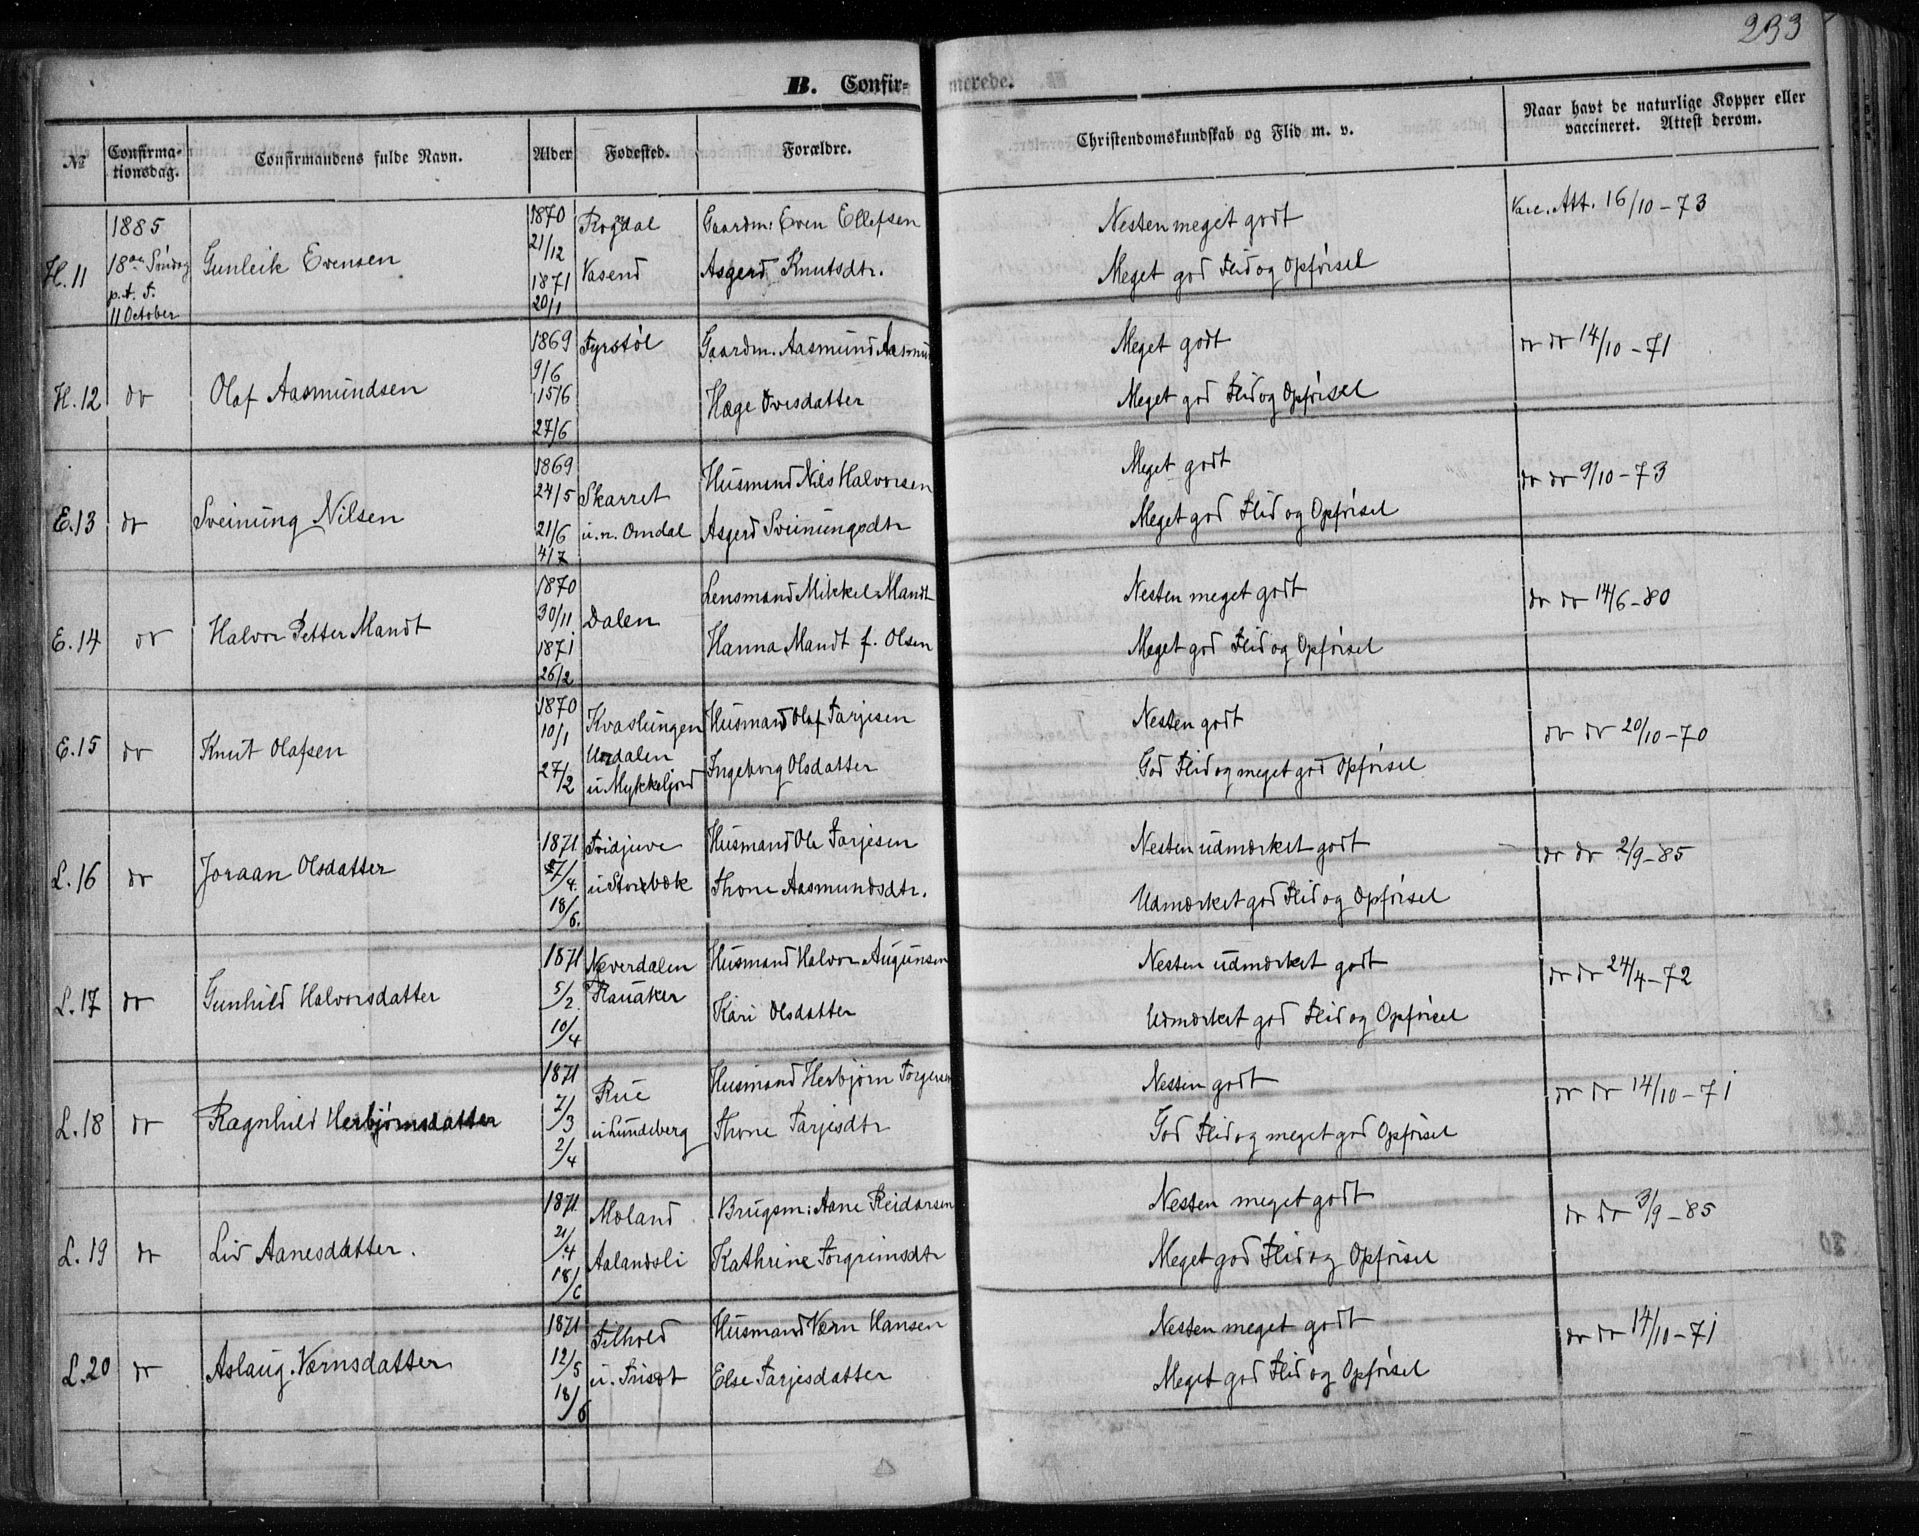 233
B. Confirmerede.
№ Confirmationsdag. Confirmandens fulde Navn. Alder Fødested. Forældre. Christendomskundskab og Flid m. v. Naar havt de naturlige Kopper eller vaccineret. Attest derom.
H. 11
1885
18de Søndag
p. t. T.
11 October
Gunleik Evensen
1870
21/12
1871
20/1
Rogdal
Vasend
Gaardm: Even Ellefsen
Asgerd Knutsdtr.
Nesten meget godt
Meget god Flid og Opførsel
Vacc. Att. 16/10-73
H. 12
do
Olaf Aasmundsen
1869
9/6
15/6
27/6
Fyrstøl
Gaardm. Aasmund Aasmu
Hæge Ovesdatter
Meget godt
Meget god Flid og Opførsel
do do 14/10-71
E. 13
do
Sveinung Nilsen
1869
24/5
21/6
4/7
Skarret
u. n. Omdal
Husmand Nils Halvorsen
Asgerd Sveinungsdtr
Meget godt
Meget god Flid og Opførsel
do do 9/10-73
E. 14
do
Halvor Petter Mandt
1870
30/11
1871
26/2
Dalen
Lensmand Mikkel Mandt
Hanna Mandt f. Olsen
Nesten meget godt
Meget god Flid og Opførsel
do do 14/6-80
E. 15
do
Knut Olafsen
1870
10/1
27/2
Kvaslungen
Urdalen
u Mykkeljord
Husmand Olaf Tarjesen
Ingeborg Olsdatter
Nesten godt
God Flid og meget god Opførsel
do do 20/10-70
L. 16
do
Joraan Olsdatter
1871
27/4.
18/6.
Tridjuve
u Storebæk
Husmand Ole Tarjesen
Thone Aasmundsdtr.
Nesten udmærket godt
Udmærket god Flid og Opførsel
do do 2/9-85
L. 17
do
Gunhild Halvorsdatter
1871
5/2.
10/4
Næverdalen
Rauaker
Husmand Halvor Augunsen
Kari Olsdatter
Nesten udmærket godt
Udmærket god Flid og Opførsel
do do 24/4-72
L. 18
do
Ragnhild Herbjørnsdatter
1871
7/3
2/4
Rue
u Lundeberg
Husmand Herbjørn Torgersen
Thone Tarjesdtr
Nesten godt
God Flid og meget god Opførsel
do do 14/10-71
L. 19
do
Liv Aanesdatter.
1871
21/4
18/6
Moland
Aalandsli
Brugsm: Aane Reidarsen
Kathrine Torgrimsdtr
Nesten meget godt
Meget god Flid og Opførsel
do do 3/9-85
L. 20
do
Aslaug Værnsdatter
1871
12/5
18/6
Tilhold
u. Trisæt
Husmand Værn Hansen
Else Tarjesdatter
Nesten meget godt
Meget god Flid og Opførsel
do do 14/10-71